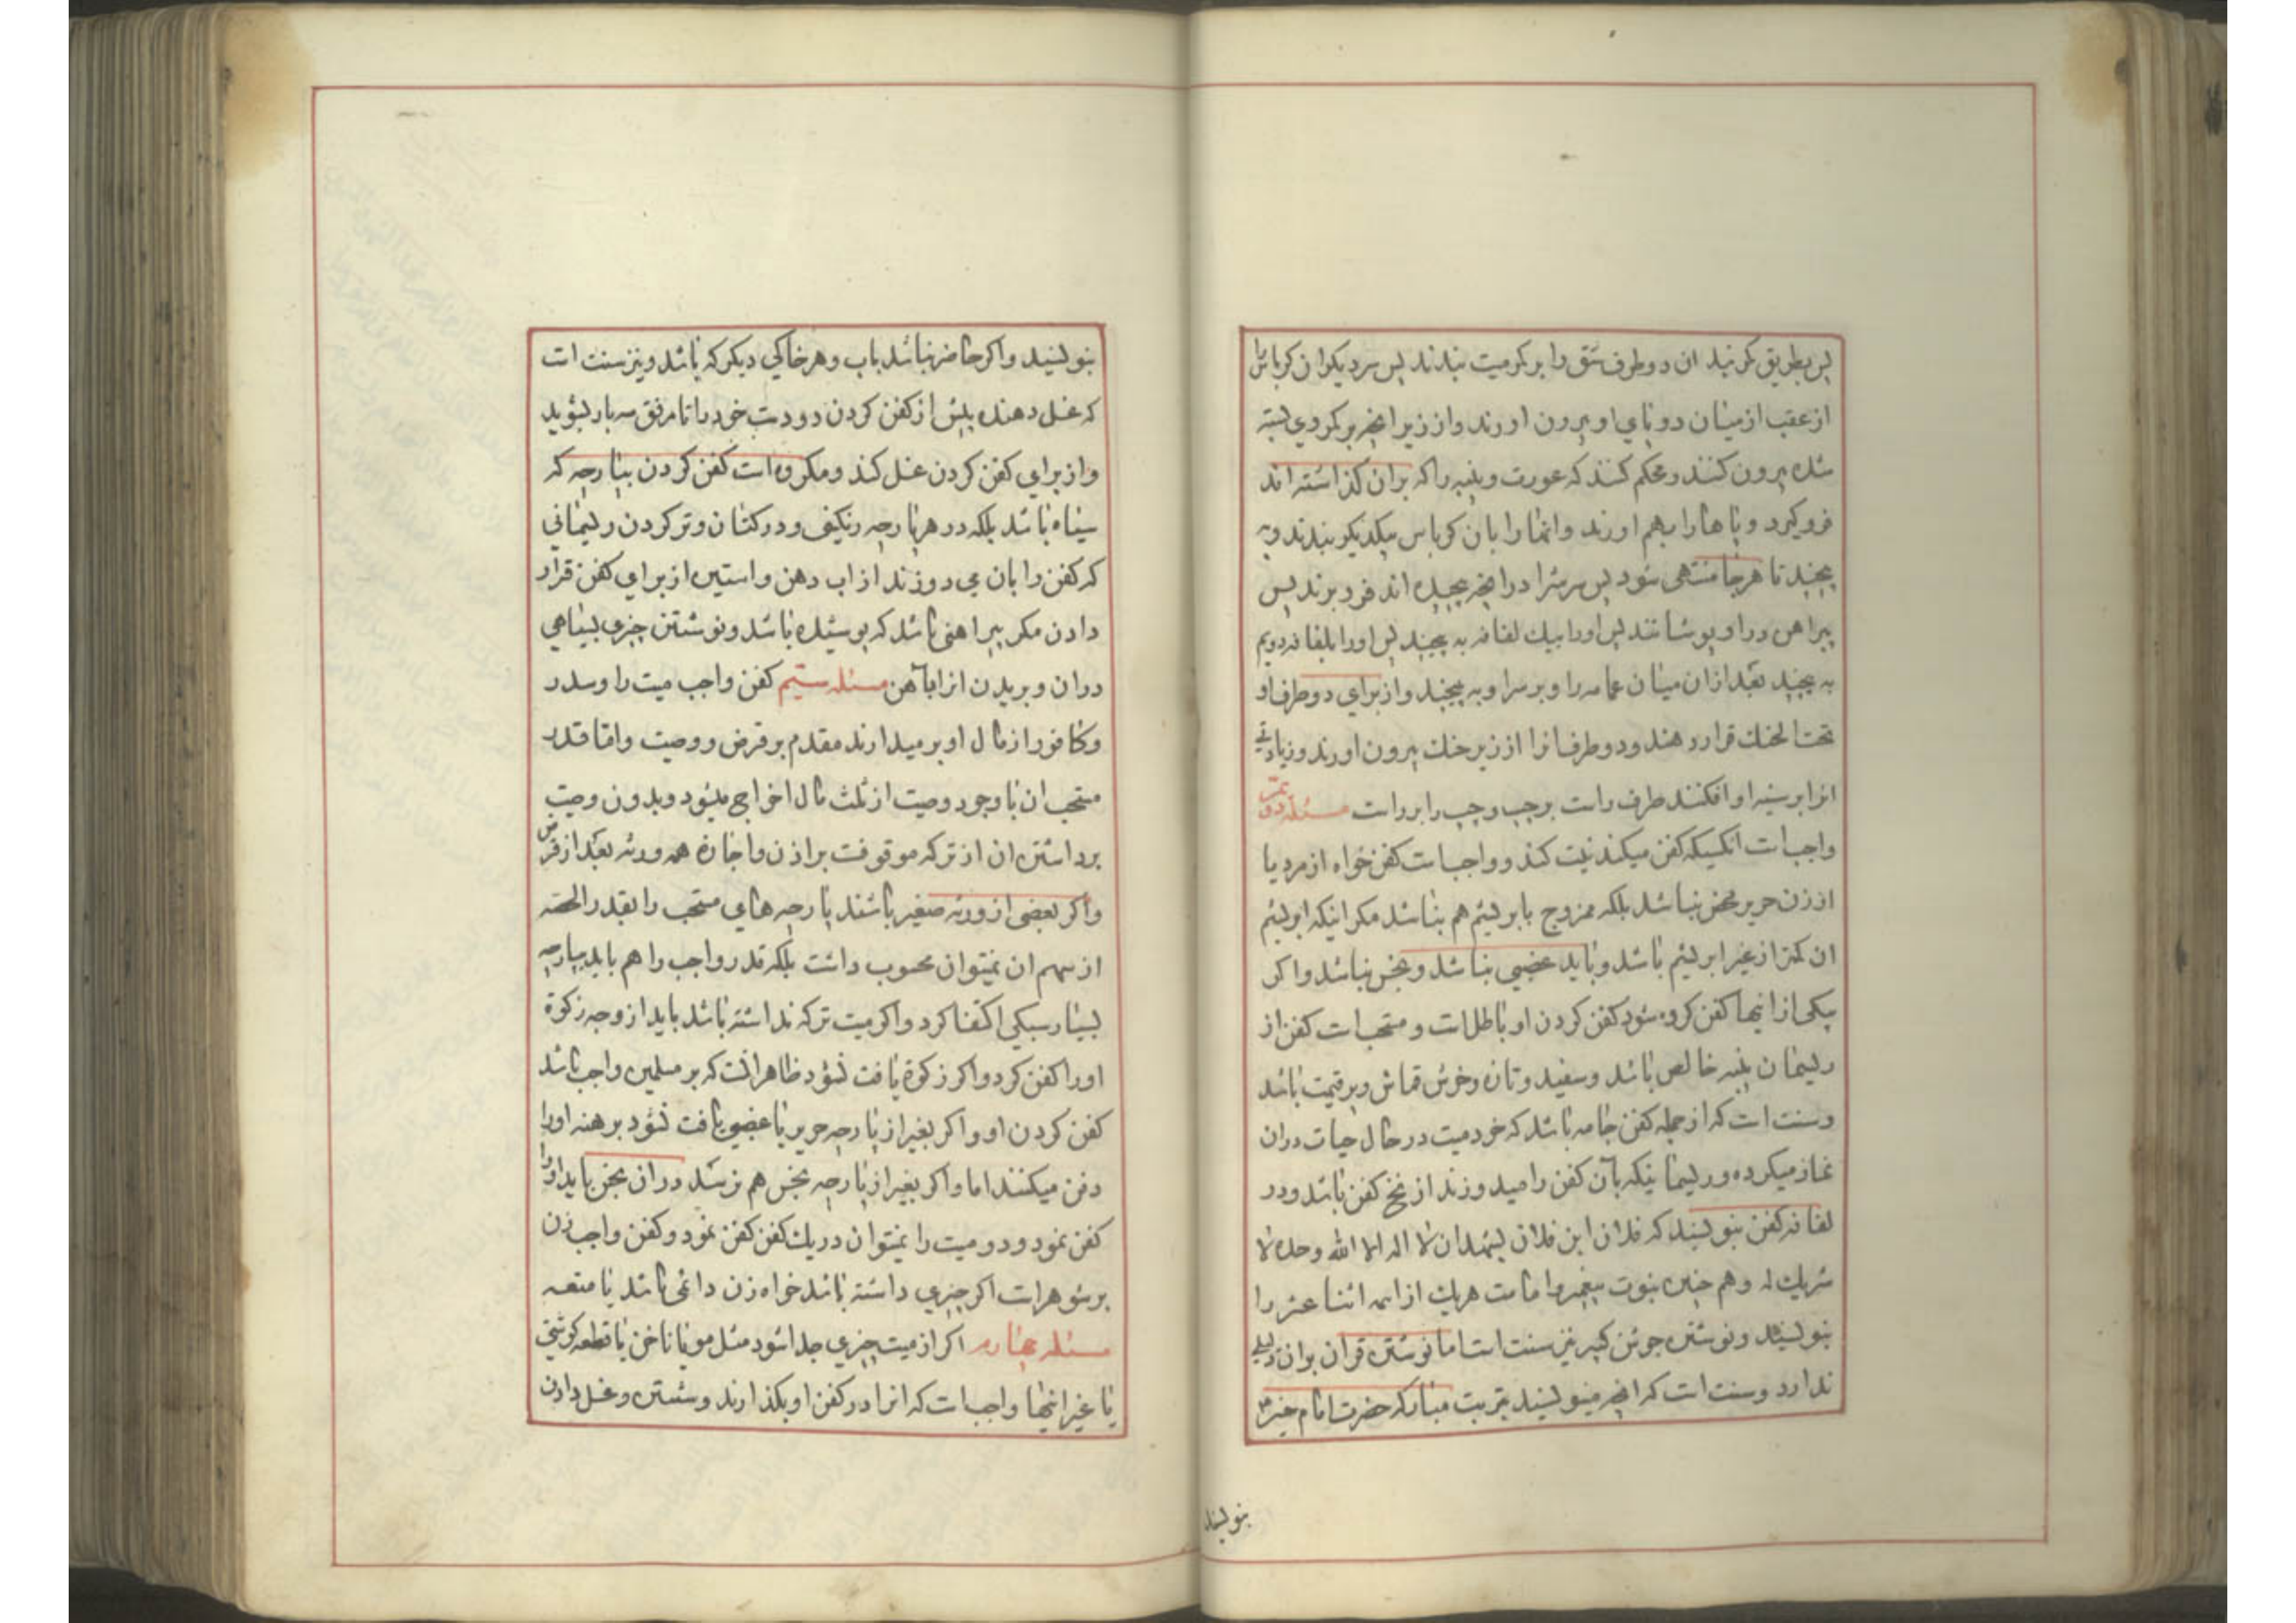 پس بطریق کمربند ان دو طرف شق را بر کمر میت ببندند پس سر دیکر ان کرباس را
از عقب از میان دو پای او بیرون اورند و از زیر انچه بر کمر وی بسته
شده بیرون کنند و محکم کنند که عورت و پنبه را که بران کذاشته اند
فرو کیرد و پاها را بهم اورند و انها را بان کرباس بیکدیکر ببندند و به
پیچند تا هر جا منتهی شود پس سرش را در انچه پیچیده اند فرو برند پس
پیراهن در او پوشانند پس اورا بیك لفافه به پیچند پس اورا بلفافه دویم
به پیچند بعد ازان میان عمامه را و بر سر او به پیچند و از برای دو طرف او
تحت الحنك قرار دهند و دو طرف انرا از زیر حنك بیرون اورند و زیادتی
انرا بر سینه او افکنند طرف راست بر چپ و چپ را بر راست مسئله دویم
واجب است انکسیکه کفن میکند نیت کند و واجب است کفن خواه از مرد یا
از زن حریر محض نباشد بلکه ممزوج بابریشم هم نباشد مکر اینکه ابریشم
ان کمتر از غیر ابریشم باشد و باید غصبی نباشد و نجس نباشد و اکر
بیکی از انها کفن کرده شود کفن کردن او باطل است و مستحب است کفن از
ریسمان پنبه خالص باشد و سفید و تازه و خوش قماش و پر قیمت باشد
و سنت است که از جمله کفن جامه باشد که خود میت در حال حیات دران
نماز میکرده و ریسمانیکه بآن کفن را میدوزند از نخ کفن باشد و در
لفافه کفن بنویسند که فلان ابن فلان یشهد ان لا اله الا الله وحده لا
شریك له و هم چنین نبوت پیغمبر و امامت هریك از ائمه اثنا عشر را
بنویسند و نوشتن جوشن کبیر نیز سنت است اما نوشتن قران بران دلیلی
ندارد و سنت است که انچه مینویسند بتربت مبارکه حضرت امام حسین ع
بنویسند
بنویسند و اکر حاضر نباشد باب و هر خاکی دیکر که باشد و نیز سنت است
که غسل دهنده پیش از کفن کردن دو دست خود را تا مرفق سه بار بشوید
و از برای کفن کردن غسل کند و مکروه است کفن کردن بپارچه که
سیاه باشد بلکه در هر پارچه رنکینی و در کتان و تر کردن ریسمانی
که کفن را بان می دوزند از اب دهن و استین از برای کفن قرار
دادن مکر پیراهنی باشد که پوشیده باشد و نوشتن چیزی بسیاهی
دران و بریدن انرا باهن مسئله سیّم کفن واجب میت را و سدر
و کافور را از مال او بر میدارند مقدم بر قرض و وصیت و اما قدر
مستحب ان با وجود وصیت از ثلث مال اخراج میشود و بدون وصیت
برداشتن ان از ترکه موقوفت بر اذن و اجازه همه ورثه بعد از قرض
و اکر بعضی از ورثه صغیر باشند پارچه های مستحب را بقدر الحصه
از سهم ان نمیتوان محسوب داشت بلکه قدر واجب را هم باید بپارچه
بسیار سبکی اکتفا کرد و اکر میت ترکه نداشته باشد باید از وجه زکوة
اورا کفن کرد و اکر زکوة یافت نشود ظاهر انست که بر مسلمین واجب باشد
کفن کردن او و اکر بغیر از پارچه حریر یا غصبی یافت نشود برهنه اورا
دفن میکنند اما و اکر بغیر از پارچه نجس هم نرسد دران نجس باید اورا
کفن نمود و دو میت را نمیتوان در یك کفن کفن نمود و کفن واجب زن
بر شوهر است اکر چیزی داشته باشد خواه زن دائمی باشد یا متعه
مسئله چهارم اکر از میت چیزی جدا شود مثل مو یا ناخن یا قطعه کوشتی
یا غیر انها واجب است که انرا در کفن او بکذارند و شستن و غسل دادن